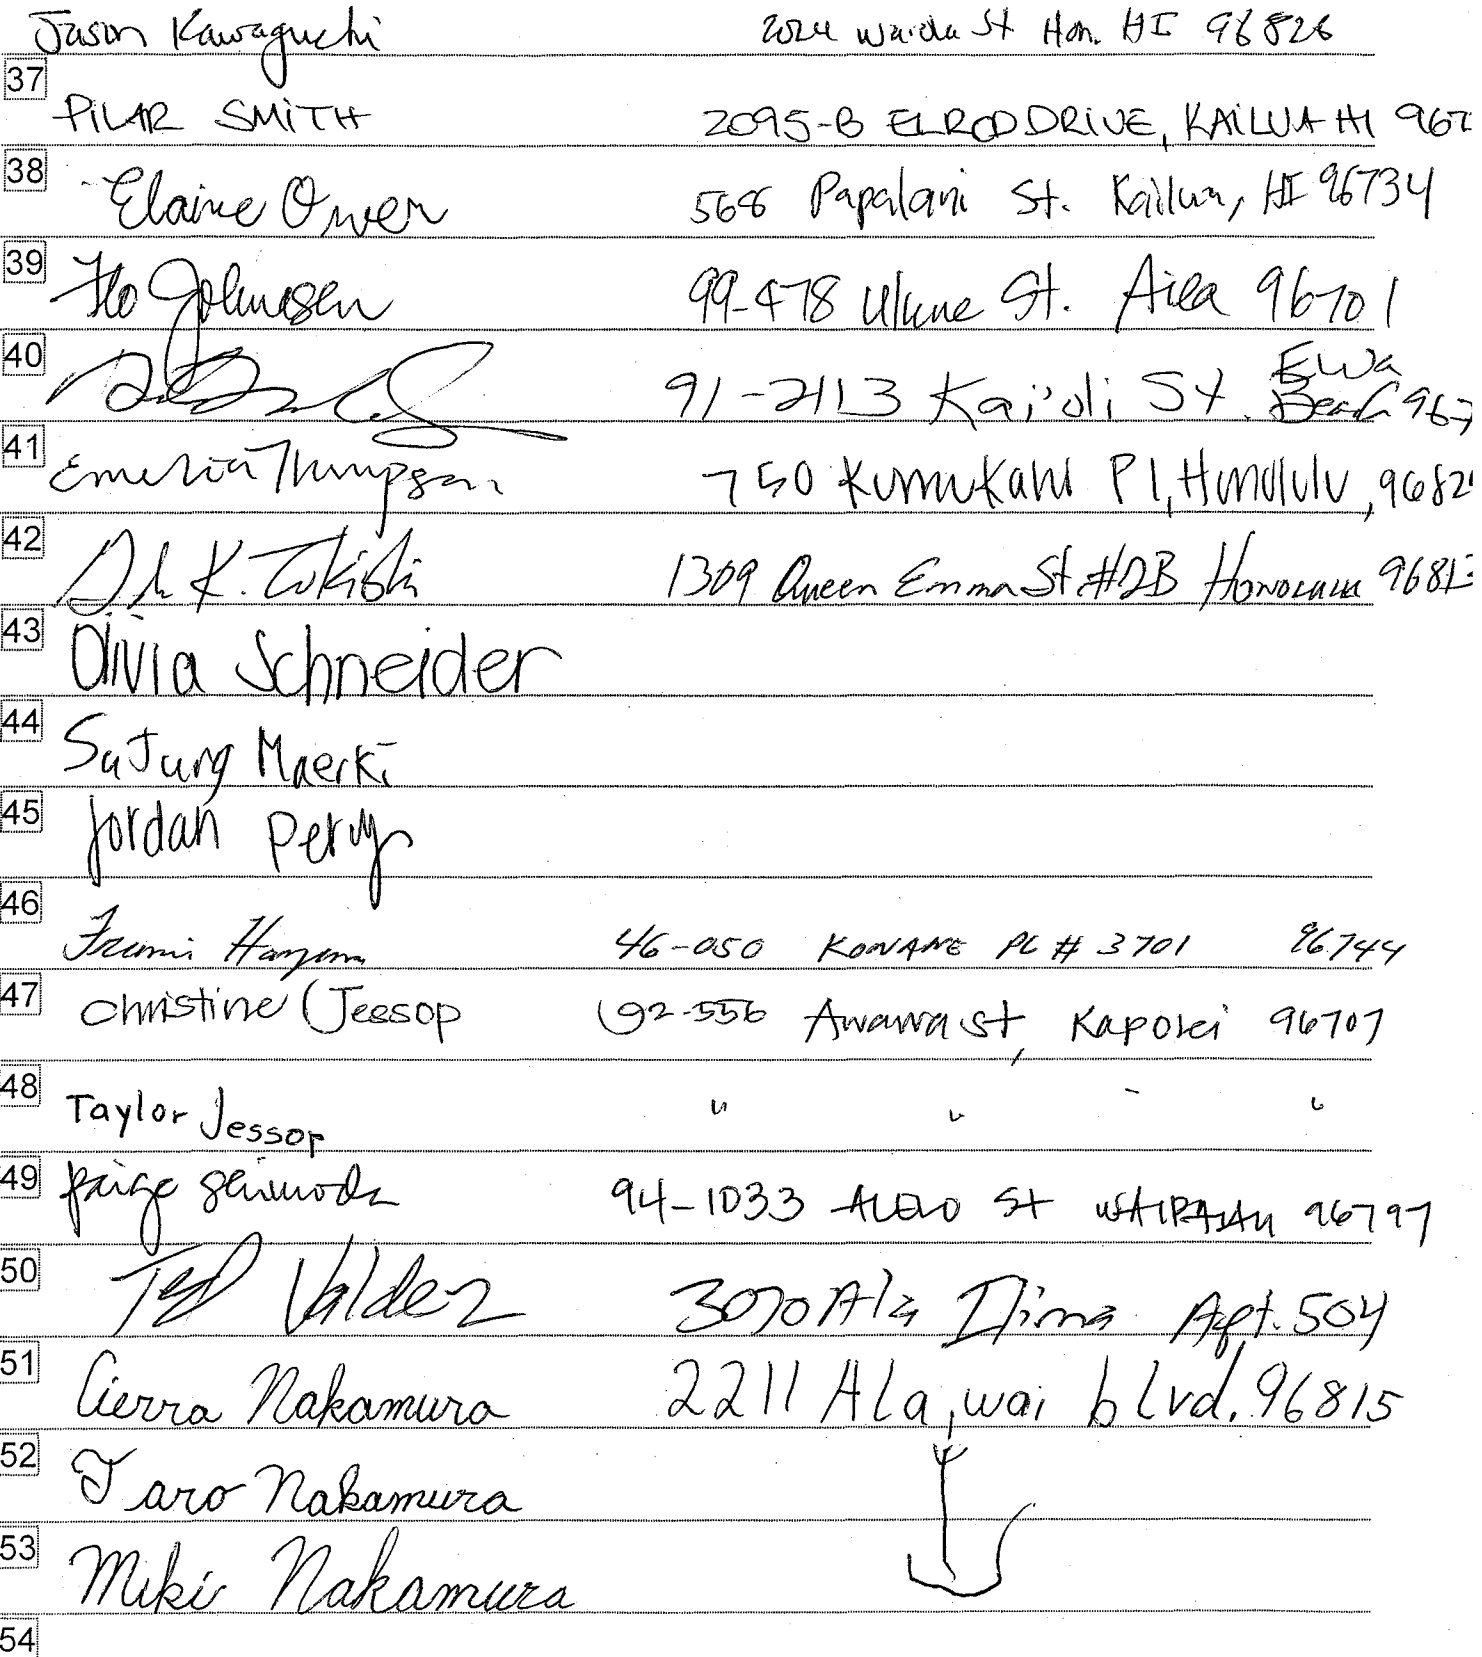 Jason Kawaguchi 2024 Waiola St Hon. HI 96826
37
PiLAR SMiTH 2095-B ELROD DRIVE, KAiLUA HI 967
38
Elaine Owen 568 Papalani St. Kailua, HI 96734
39
Flo Johnsen 99-478 Ulune St. Aiea 96701
40
91-2113 Kai'oli St. Ewa Beach 967
41
Emelia Thompson 750 Kumukahi Pl, Honolulu, 9682
42
K. 1309 Queen Emma St #2B Honolulu 96813
43
Olivia Schneider
44
SuJung Maerki
45
Jordan Perry
46
46-050 KONANE PL # 3701 96744
47
Christine Jessop 92-556 Awawa st, Kapolei 96707
48
Taylor Jessop " " - "
49
paige shimoda 94-1033 St WAIPAHU 96797
50
Ted Valdez 3070 Ala Ilima Apt. 504
51
Cierra Nakamura 2211 Ala wai blvd. 96815
52
Taro Nakamura
53
Miki Nakamura
54